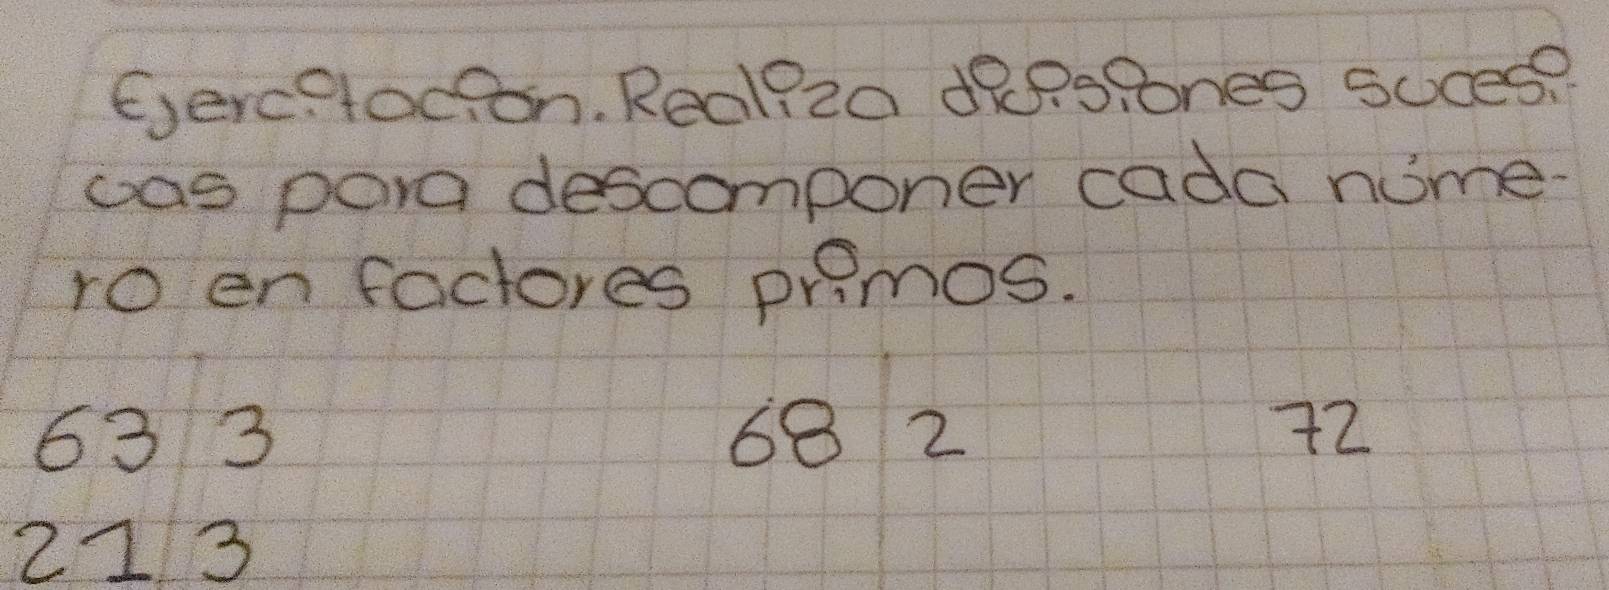 Ejercitación. Realiza divisiones sucesi-
vas para descomponer cada núme-
ro en factores primos.
63 3 68 2 72
21 3